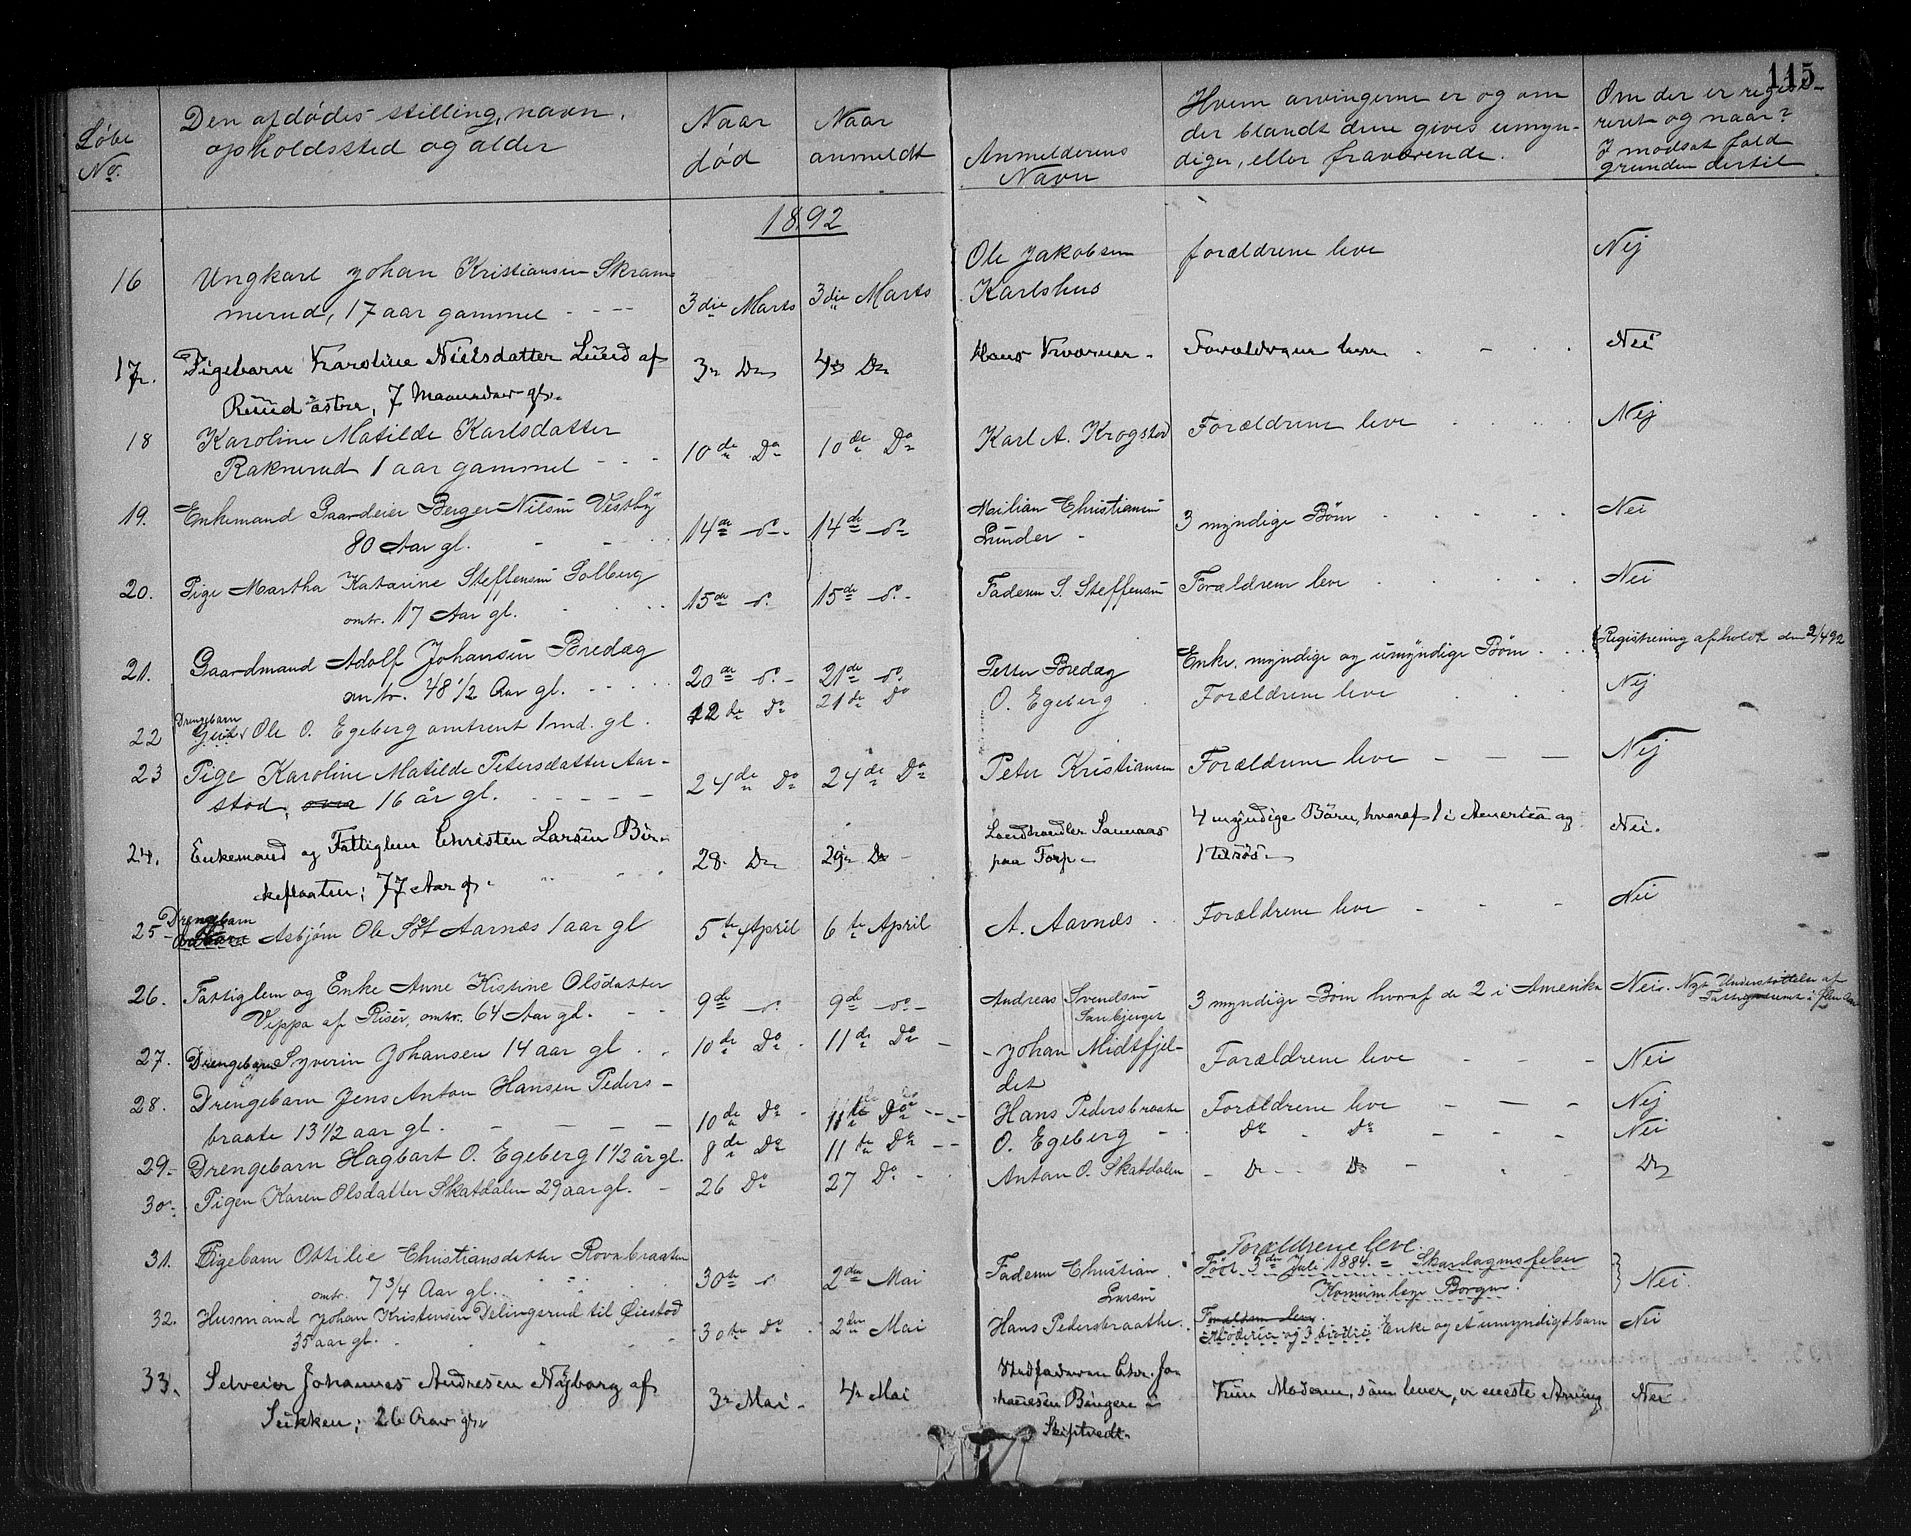 115
Løbe No. | Den afdødes stilling, navn, opholdssted og alder | Naar død | Naar anmeldt | Anmelderens Navn | Hvem arvingerne er og om der blandt dem gives umyndiger, eller fraværende. | Om der er registreret og naar? I modsat fald grunden dertil
1892
16 | Ungkarl Johan Kristiansen Skrammerud, 17 aar gammel | 3die Marts | 3die Marts | Ole Jakobsen Karlshus | forældrene leve | Nej
17. | Pigebarn Karoline Nielsdatter Lund af Ruud østre, 7 Maaneder gl. | 3 Do | 4 Do | Hans Kværner | Forældrene leve | Nei
18 | Karoline Matilde Karlsdatter Raknerud 1 aar gammel | 10de Do | 10de Do | Karl A. Krogstad | Forældrene leve | Nej
19. | Enkemand Gaardeier Berger Nilsen Vestby 80 Aar gl. | 14de do | 14de do | Milian Christiansen Lunder | 3 myndige Børn | Nei
20. | Pige Martha Katarine Steffensen Solberg omtr. 17 Aar gl. | 15de do | 15de do | Faderen S. Steffensen | Forældrene leve | Nei
21. | Gaardmand Adolf Johansen Bredag omtr. 48 1/2 Aar gl. | 20de do | 21de do | Petter Bredag | Enke, myndige og umyndige Børn | Registrering afholdt den 2/4 92
22 | Drengebarn Ole O. Egeberg omtrent 1 md. gl. | 12de Do | 21de Do | O. Egeberg | Forældrene leve | Nej
23 | Pige Karoline Matilde Petersdatter Aarstød, over 16 år gl. | 24de Do | 24de Do | Peter Kristiansen | Forældrene leve | Nej
24. | Enkemand og Fattiglem Christen Larsen Birkeplaaten; 77 Aar gl. | 28 Do | 29 Do | Landhandler Sannaas paa Torp | 4 myndige Børn, hvoraf 1 i America og 1 tilsøs | Nei.
25 | Drengebarn Asbjørn Ole Søt Aarnæs 1 aar gl | 5te April | 6te April | A. Aarnæs | Forældrene leve | Nei
26. | Fattiglem og Enke Anne Kistine Olsdatter Vippa af Riser, omtr. 64 Aar gl. | 9de do | 9de do | Andreas Svendsen Sandbjerget | 3 myndige Børn hvoraf de 2 i Amerika | Nei. Nyt Understøttelse af
27. | Drengebarn Syverin Johansen 14 aar gl | 10de Do | 11de Do | Johan Midtfjeldet | Forældrene leve | Nei
28. | Drengebarn Jens Anton Hansen Pedersbraate 13 1/2 aar gl. | 10de Do | 11te Do | Hans Pedersbraate | Forældrene leve | Nej
29. | Drengebarn Hagbart O. Egeberg 1 1/2 år gl. | 8de Do | 11te Do | O. Egeberg | Do Do | Nei
30. | Pigen Karen Olsdatter Skatdalen 29 aar gl. | 26 Do | 27 Do | Anton O. Skatdalen | Do Do | Do
31. | Pigebarn Ottilie Christiansdatter Rovnbraaten omtr. 7 3/4 Aar gl. | 30te do | 2den Mai | Faderen Christian Larsen | Forældrene leve. Født 3de Juli 1884. = Skarlagensfeber Kommunlæge Borgen. | Nei.
32. | Husmand Johan Kristensen Delingsrud til Øiestad 35 aar gl. | 30te Do | 2den Mai | Hans Pedersbraathe. | Forældren leve Moderen og 3 Enke og et umyndigt barn | Nei
33. | Selveier Johannes Andresen Nyborg af Sukken; 26 Aar gl. | 3 Mai | 4 Mai | Stedfaderen Chr. Johannesen Bingen i Skiptvedt | Kun Moderen, som lever, er eneste Arving | Nei